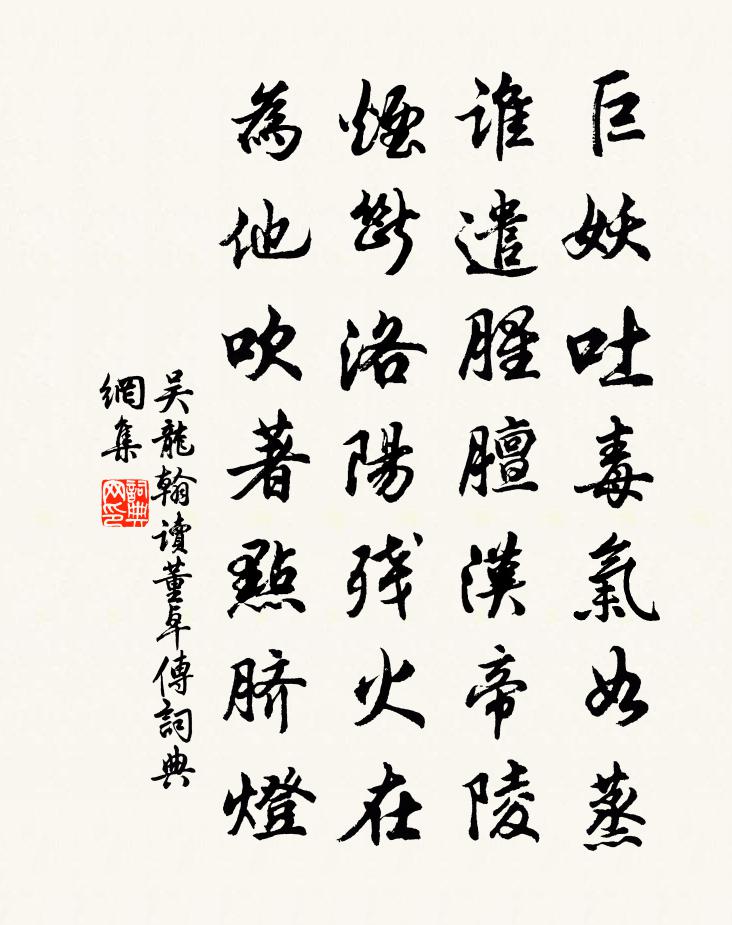 巨妖吐毒氣如蒸
誰遣腥膻漢帝陵
煙斷洛陽殘火在
為他吹著點臍燈
吴龍翰讀董卓傳詞典
網集
詞典網印